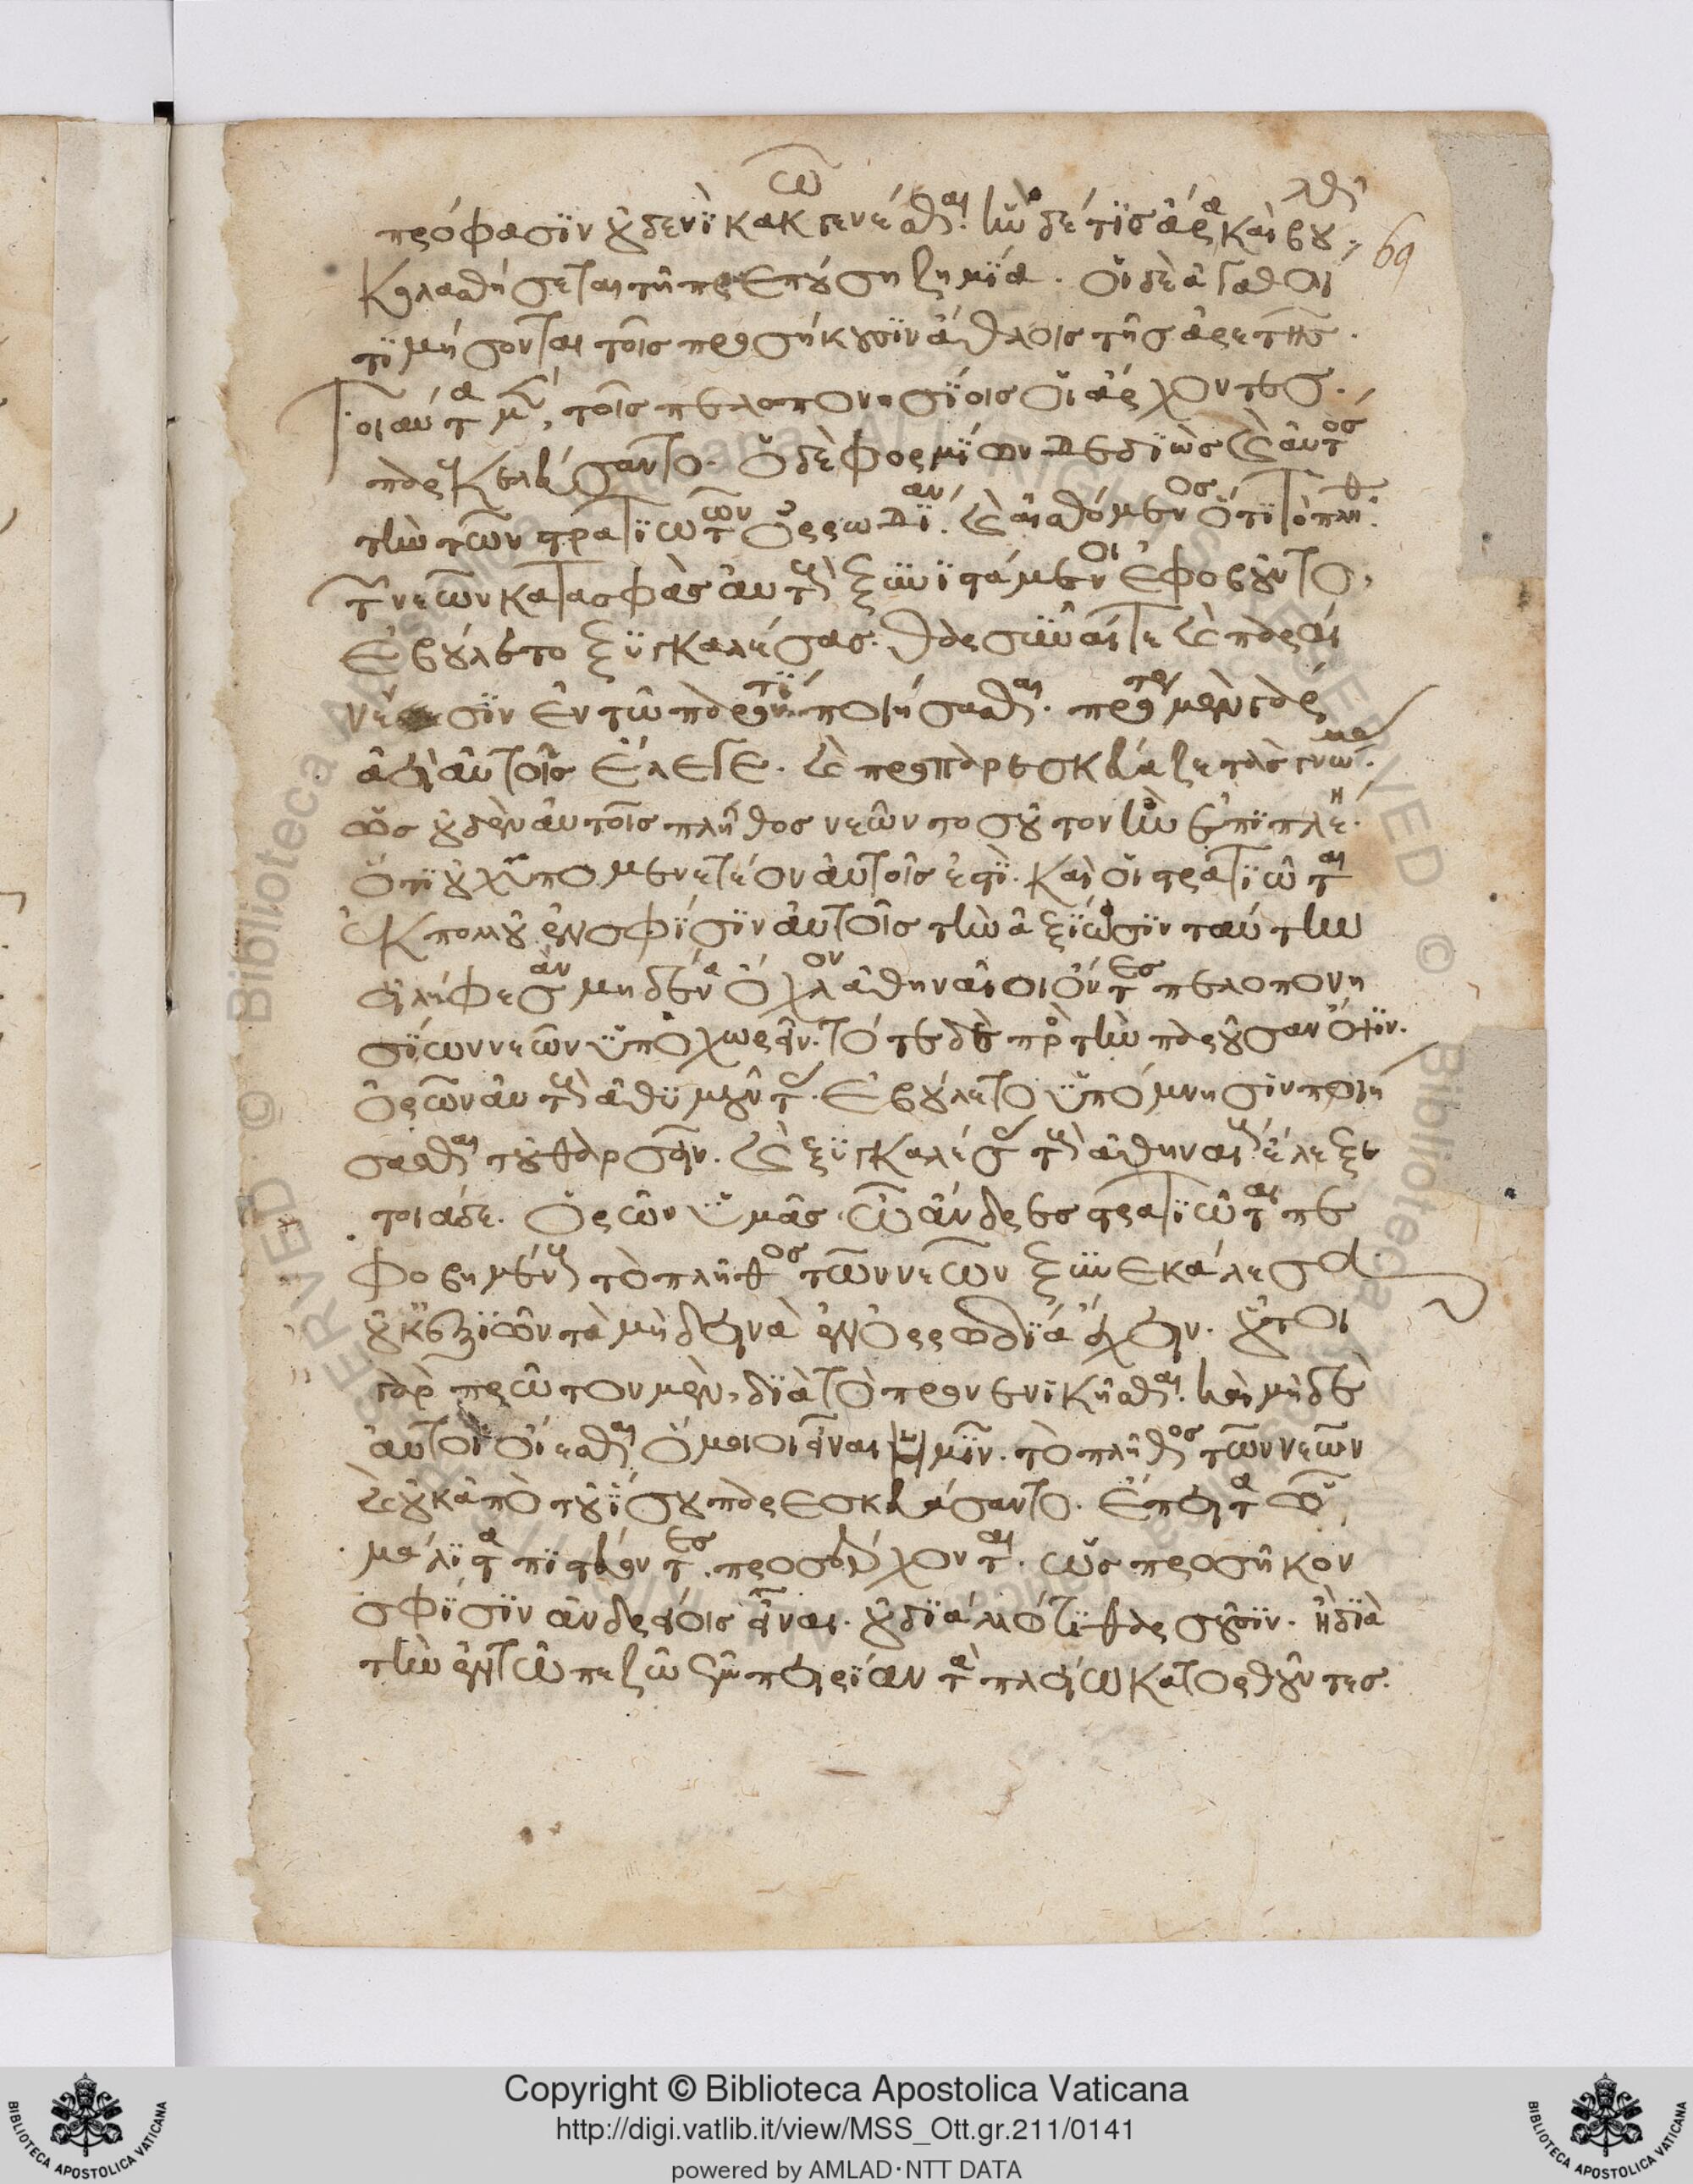 πρόφασϊν οὐδενὶ κακῶ γενέσθαι. ἢν δέ τϊσ ἄρα καὶ βουληθῆ,
69
κολασθήσεται τῆ πρεπούση ζημία. οἱ δὲ ἀγαθοὶ
τϊμήσονται τοῖσ προσήκουσϊν ἄθλοισ τῆσ ἀρετῆσ.
Τοιαῦτα μὲν, τοῖσ πελοποννησίοισ οἱ ἄρχοντεσ
παρεκελεύσαντο. ὁ δὲ φορμίων δεδιὼσ καὶ αὐτὸσ
τὴν τῶν στρατϊωτῶν ὀρρωδίαν. καὶ αἰσθόμενοσ ὅτϊ τὸ πλῆθοσ
τῶν νεῶν κατὰ σφᾶσ αὐτοὺσ ξυνϊστάμενοι ἐφοβοῦντο,
ἐβούλετο ξυγκαλέσασ θαρσῦναί τε καὶ παραί
νεσϊν ἐν τῶ παρόντϊ ποιήσασθαι. πρότερον μὲν γὰρ
ἀεὶ αὐτοῖσ ἔλεγε. καὶ προπαρεσκεύαζε τὰσ γνώμασ
ὡσ οὐδὲν αὐτοῖσ πλῆθοσ νεῶν τοσοῦτον ἢν ἐπϊπλέη
ὅτϊ οὐχ ὑπομενετέον αὐτοῖσ ἐστϊ. καὶ οἱ στρατϊῶται
ἐκ πολλοῦ ἐν σφίσϊν αὐτοῖσ τὴν ἀξίωσϊν ταύτην
εἰλήφεσαν μηδένα ὄχλον ἀθηναῖοι ὄντεσ πελοπονη
σίων νεῶν ὑποχωρεῖν. τότε δὲ πρὸσ τὴν παροῦσαν ὄψϊν.
ὁρῶν αὐτοὺσ ἀθυμοῦντασ. ἐβούλετο ὑπόμνησϊν ποιή
σασθαι τοῦ θαρσεῖν. καὶ ξυγκαλέσασ τοὺσ ἀθηναίουσ ἔλεξε
τοιάδε. ὁρῶν ὑμᾶσ. ὦ ἄνδρεσ στρατϊῶται πε
φοβημένουσ τὸ πλῆθοσ τῶν νεῶν ξυνεκάλεσα
οὐκ ἀξϊῶν τὰ μὴ δεινὰ ἐν ὀρρωδία ἔχειν. οὗτοι
γὰρ πρῶτον μὲν, διὰ τὸ προνενικῆσθαι. καὶ μηδὲ
αὐτοὶ οἴεσθαι ὁμοῖοι εἶναι ἡμῖν. τὸ πλῆθοσ τῶν νεῶν
καὶ οὐκ ἀπὸ τοῦ ἴσου παρεσκευάσαντο. ἔπειτα ὧ
μάλϊστα πϊστεύοντεσ προσέρχονται. ὡσ προσῆκον
σφίσϊν ἀνδρείοισ εἶναι. οὐ δϊ' ἄλλο τϊ θαρσοῦσϊν. ἢ δϊὰ
τὴν ἐν τῶ πεζῶ ἐμπειρίαν τὰ πλείω κατορθοῦντεσ.
Copyright © Biblioteca Apostolica Vaticana
http://digi.vatlib.it/view/MSS_Ott.gr.211/0141
powered by AMLAD·NTT DATA
BIBLIOTECA APOSTOLICA VATICANA
BIBLIOTECA APOSTOLICA VATICANA